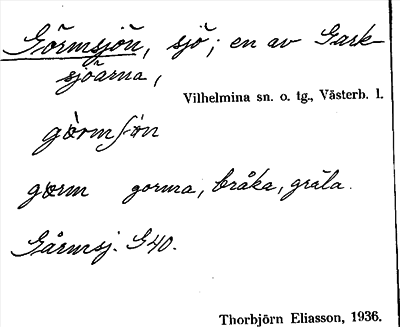 Görmsjön, sjö; en av Gark-
sjöarna,
Vilhelmina sn. o. tg., Västerb. l.
gœrm gorma, bråka, gräla.
Gårmsj. G40.
Thorbjörn Eliasson, 1936.